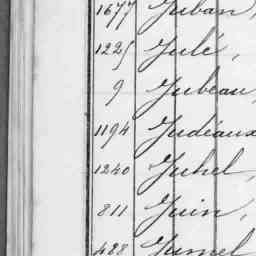 1677 Juban,
1225 Julé,
9 Jubeau,
1194 Judéaux
1240 Juhel,
811 Juin,
488 Jumel